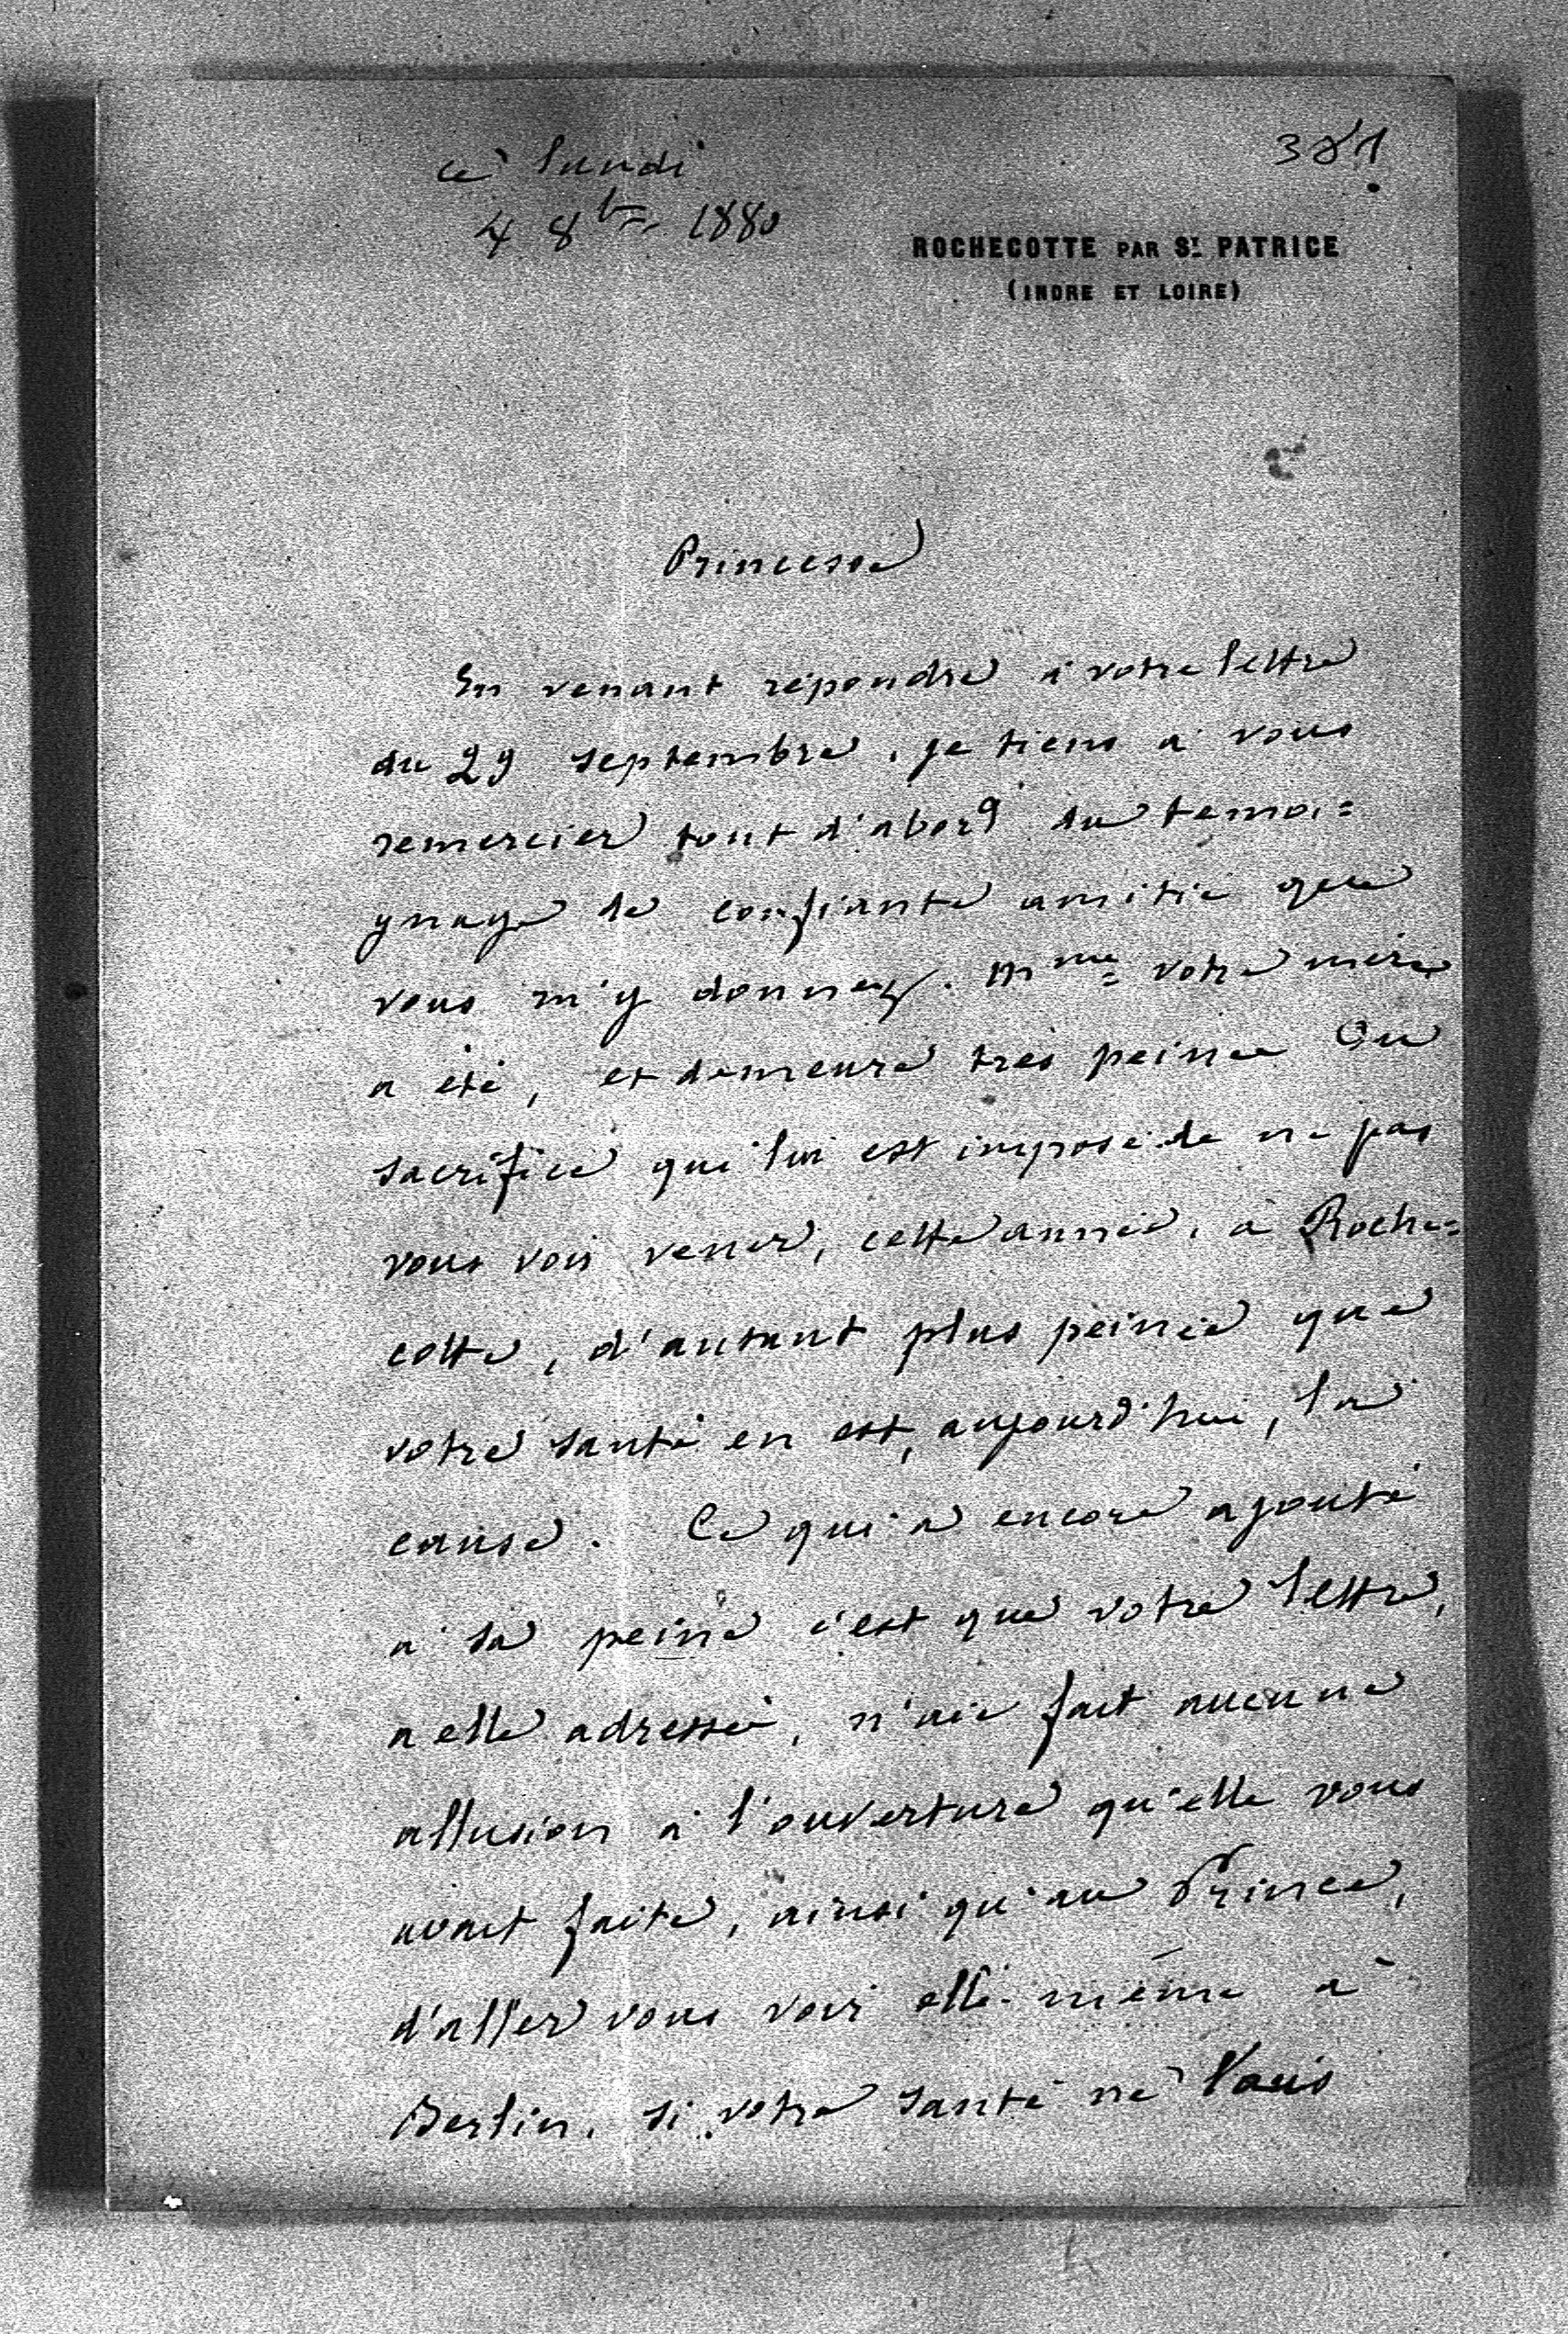 381
ce lundi
4 8bre 1880
ROCHECOTTE PAR ST. PATRICE
(INDRE ET LOIRE)
Princesse
En venant répondre à votre lettre
du 29 septembre, je tiens à vous
remercier tout d'abord du temoi=
gnage de confiante amitié que
vous m'y donnez. Mme votre mère
a été, et demeure très peinée du
sacrifice qui lui est imposé de ne pas
vous voir venir, cette année, à Roche=
cotte, d'autant plus peinée que
votre santé en est, aujourd'hui, la
cause. Ce qui a encore ajouté
à sa peine c'est que votre lettre,
a elle adressée, n'aie fait aucune
allusion à l'ouverture qu'elle vous
avait faite, ainsi qu'au Prince,
d'aller vous voir elle-même à
Berlin, si votre santé ne vous